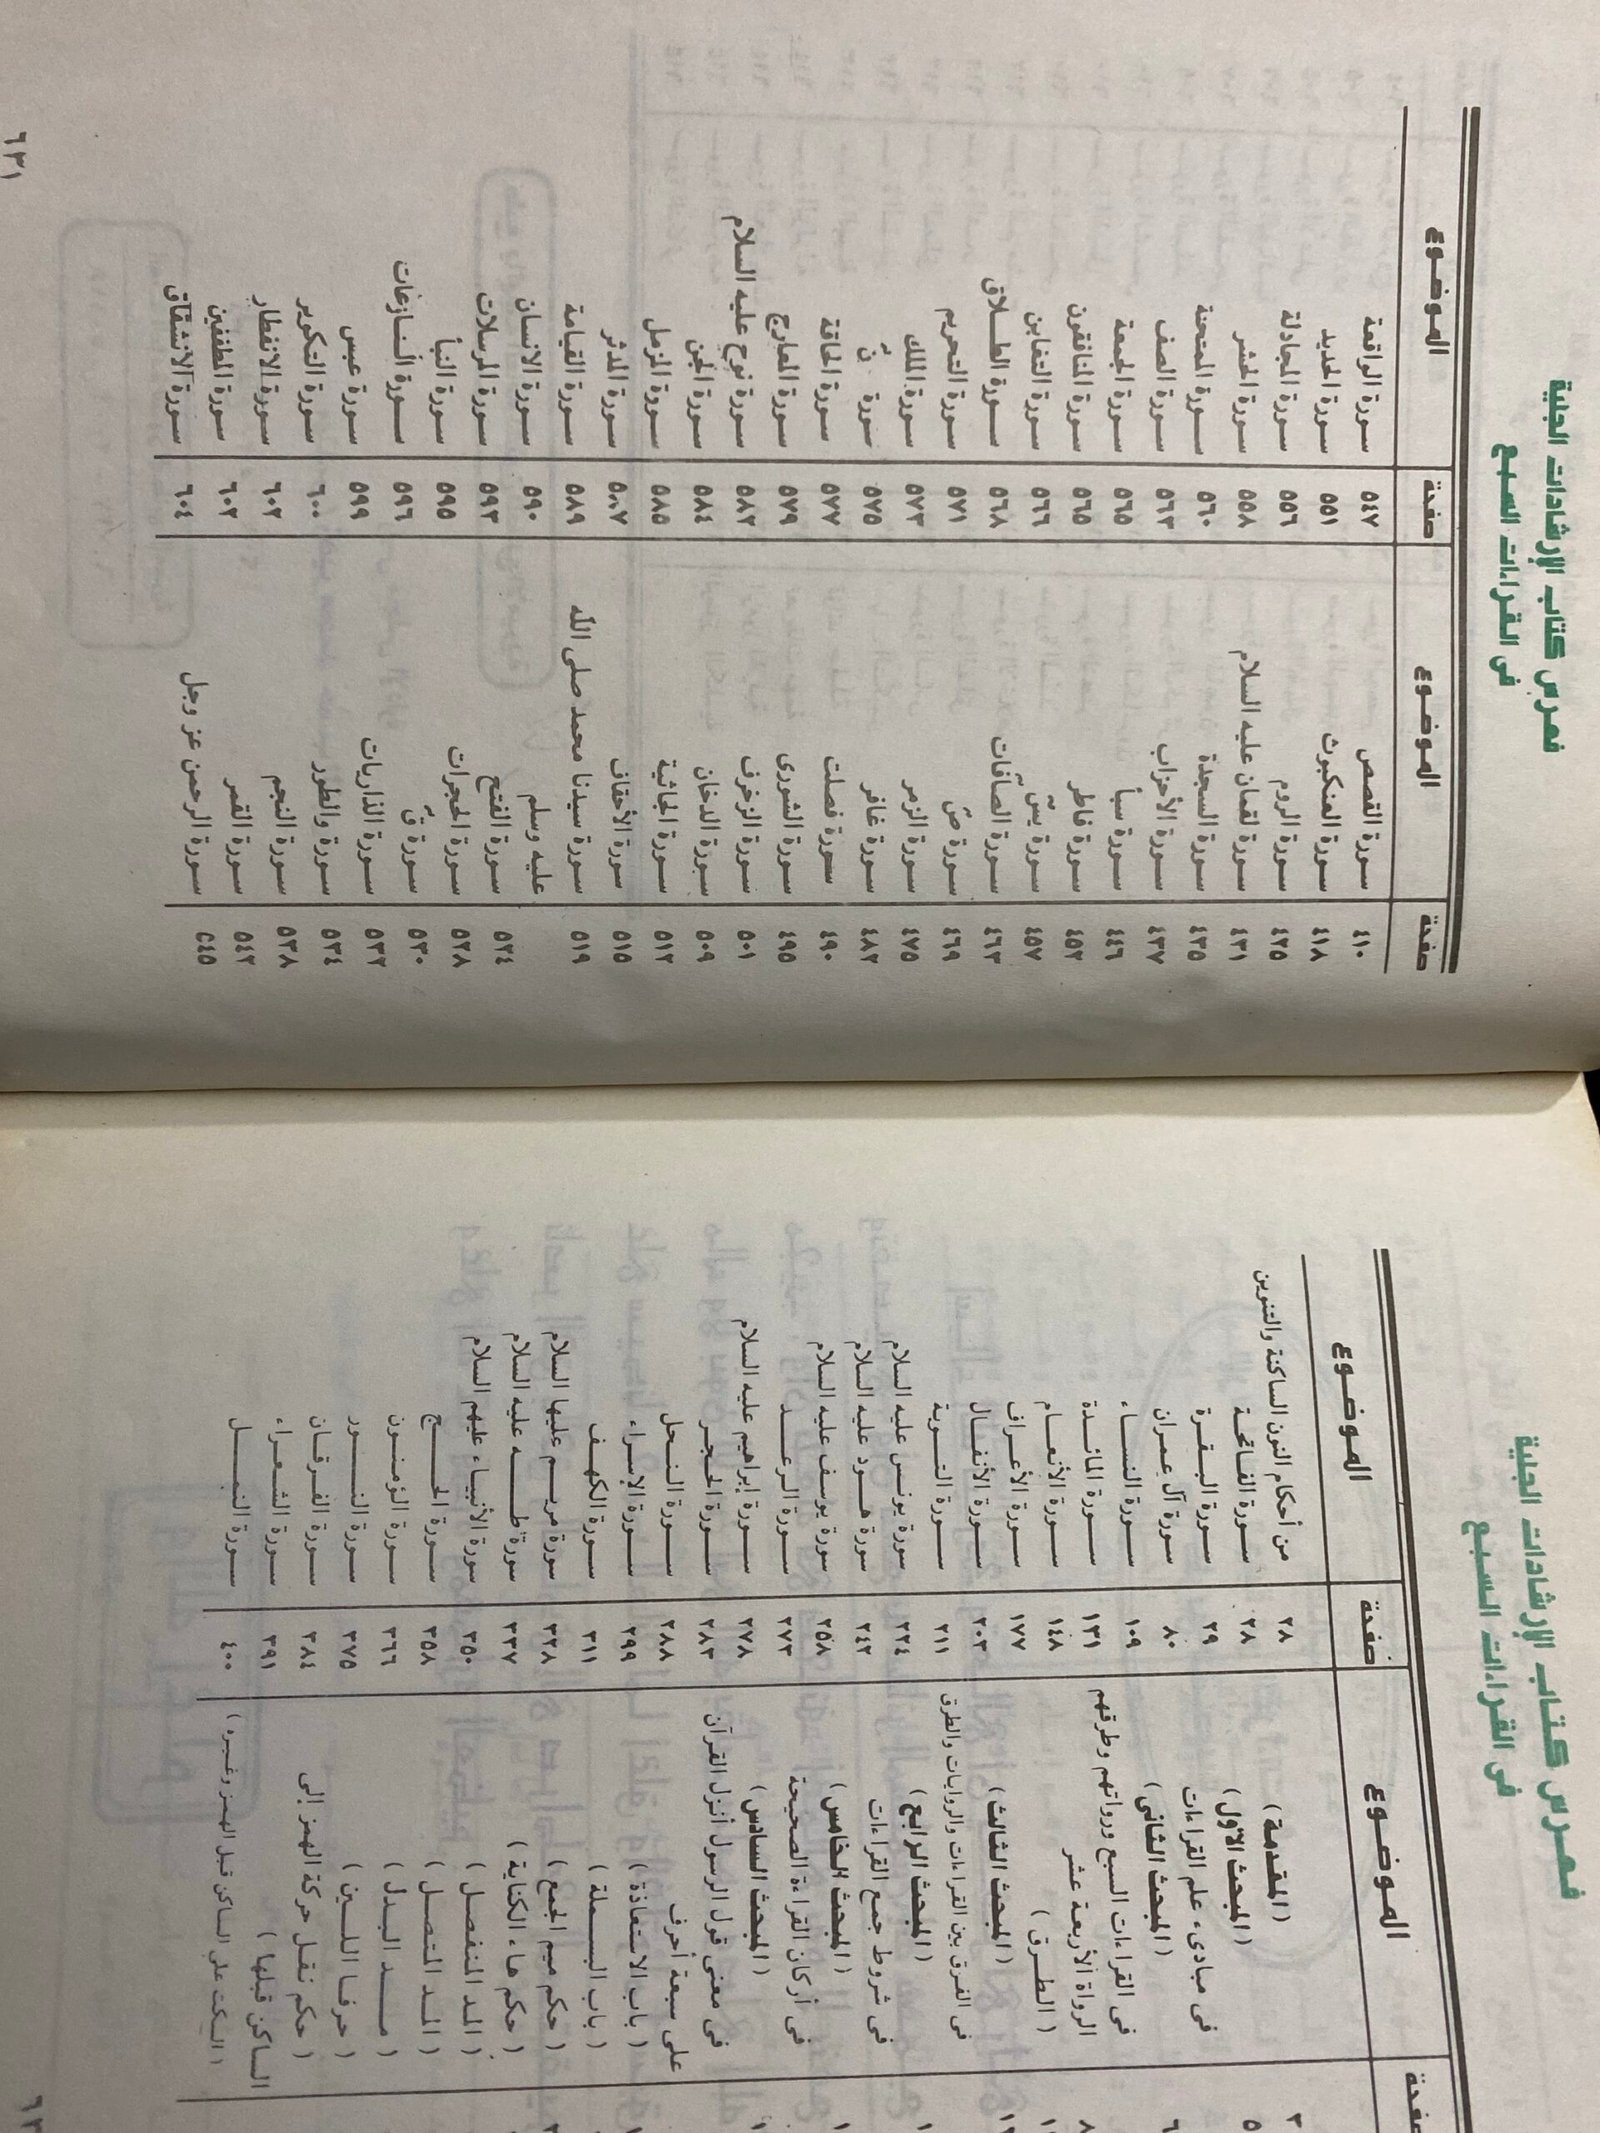 فهرس كتاب الإرشادات الجلية
فى القراءات السبع
صفحة الموضوع
٣ ( المقدمة )
٥ ( المبحث الأول )
فى مبادىء علم القراءات
٦ ( المبحث الثانى )
فى القراءات السبع ورواتهم وطرقهم
الرواة الأربعة عشر
( الطرق )
( المبحث الثالث )
فى الفرق بين القراءات والروايات والطرق
( المبحث الرابع )
فى شروط جمع القراءات
( المبحث الخامس )
فى أركان القراءة الصحيحة
( المبحث السادس )
فى معنى قول الرسول أنزل القرآن
على سبعة أحرف
( باب الاستعاذة )
( باب البسملة )
( حكم ميم الجمع )
( حكم هاء الكناية )
( المد المنفصل )
( المد المتصل )
( مد البدل )
( حرفا اللين )
( حكم نقل حركة الهمز إلى
الساكن قبلها )
( السكت على الساكن قبل الهمز وغيره )
صفحة الموضوع
٢٨ من أحكام النون الساكنة والتنوين
٢٨ سورة الفاتحة
٢٩ سورة البقرة
٨٠ سورة آل عمران
١٠٩ سورة النساء
١٣١ سورة المائدة
١٤٨ سورة الأنعام
١٧٧ سورة الأعراف
٢٠٣ سورة الأنفال
٢١١ سورة التوبة
٢٢٤ سورة يونس عليه السلام
٢٤٢ سورة هود عليه السلام
٢٥٨ سورة يوسف عليه السلام
٢٧٣ سورة الرعد
٢٧٨ سورة إبراهيم عليه السلام
٢٨٣ سورة الحجر
٢٨٨ سورة النحل
٢٩٩ سورة الإسراء
٣١١ سورة الكهف
٣٢٨ سورة مريم عليها السلام
٣٣٧ سورة طه عليه السلام
٣٥٠ سورة الأنبياء عليهم السلام
٣٥٨ سورة الحج
٣٦٦ سورة المؤمنون
٣٧٥ سورة النور
٣٨٤ سورة الفرقان
٣٩١ سورة الشعراء
٤٠٠ سورة النمل
فهرس كتاب الإرشادات الجلية
فى القراءات السبع
صفحة الموضوع
٤١٠ سورة القصص
٤١٨ سورة العنكبوت
٤٢٥ سورة الروم
٤٣١ سورة لقمان عليه السلام
٤٣٥ سورة السجدة
٤٣٧ سورة الأحزاب
٤٤٦ سورة سبأ
٤٥٢ سورة فاطر
٤٥٧ سورة يسٓ
٤٦٣ سورة الصافات
٤٦٩ سورة صٓ
٤٧٥ سورة الزمر
٤٨٢ سورة غافر
٤٩٠ سورة فصلت
٤٩٥ سورة الشورى
٥٠١ سورة الزخرف
٥٠٩ سورة الدخان
٥١٢ سورة الجاثية
٥١٥ سورة الأحقاف
٥١٩ سورة سيدنا محمد صلى الله
عليه وسلم
٥٢٤ سورة الفتح
٥٢٨ سورة الحجرات
٥٣٠ سورة قٓ
٥٣٢ سورة الذاريات
٥٣٤ سورة والطور
٥٣٨ سورة النجم
٥٤٢ سورة القمر
٥٤٥ سورة الرحمن عز وجل
صفحة الموضوع
٥٤٧ سورة الواقعة
٥٥١ سورة الحديد
٥٥٦ سورة المجادلة
٥٥٨ سورة الحشر
٥٦٠ سورة الممتحنة
٥٦٣ سورة الصف
٥٦٥ سورة الجمعة
٥٦٥ سورة المنافقون
٥٦٦ سورة التغابن
٥٦٨ سورة الطلاق
٥٧١ سورة التحريم
٥٧٣ سورة الملك
٥٧٥ سورة نٓ
٥٧٧ سورة الحاقة
٥٧٩ سورة المعارج
٥٨٢ سورة نوح عليه السلام
٥٨٤ سورة الجن
٥٨٥ سورة المزمل
٥٨٧ سورة المدثر
٥٨٩ سورة القيامة
٥٩٠ سورة الانسان
٥٩٣ سورة المرسلات
٥٩٥ سورة النبأ
٥٩٦ سورة النازعات
٥٩٩ سورة عبس
٦٠٠ سورة التكوير
٦٠٢ سورة الانفطار
٦٠٣ سورة المطففين
٦٠٤ سورة الانشقاق
٦٣١